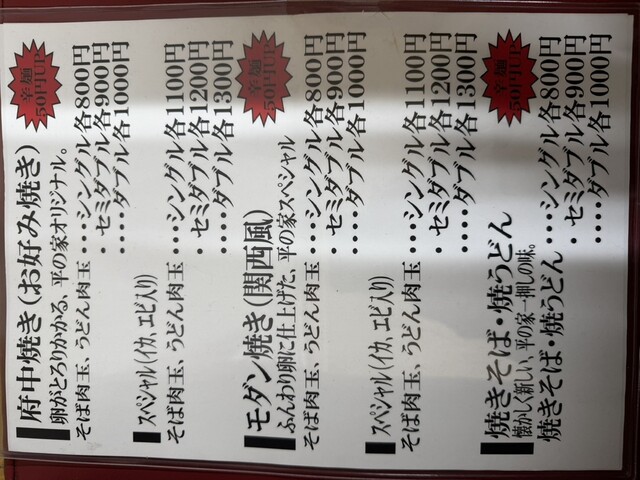 府中焼き(お好み焼き)
辛麺
50円UP
卵がとろりかかる、平の家オリジナル。
そば肉玉、うどん肉玉 …シングル各800円
・セミダブル各900円
‥‥ダブル各1000円
スペシャル(イカ、エビ入り)
そば肉玉、うどん肉玉 …シングル各1100円
・セミダブル各1200円
‥‥ダブル各1300円
モダン焼き(関西風)
辛麺
50円UP
ふんわり卵に仕上げた、平の家スペシャル
そば肉玉、うどん肉玉 …シングル各800円
・セミダブル各900円
‥‥ダブル各1000円
スペシャル(イカ、エビ入り)
そば肉玉、うどん肉玉 …シングル各1100円
・セミダブル各1200円
‥‥ダブル各1300円
焼きそば・焼うどん
辛麺
50円UP
懐かしく新しい、平の家一押しの味。
焼きそば・焼うどん …シングル各800円
・セミダブル各900円
‥‥ダブル各1000円